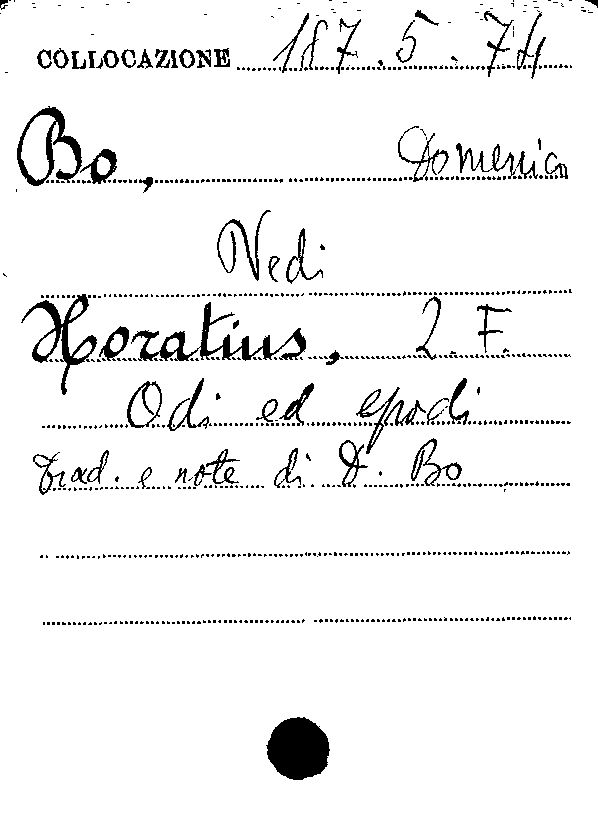 COLLOCAZIONE 187.5.74
Bo, Domenico
Vedi
Horatius, Q. F.
Odi ed epodi
Trad. e note di D. Bo